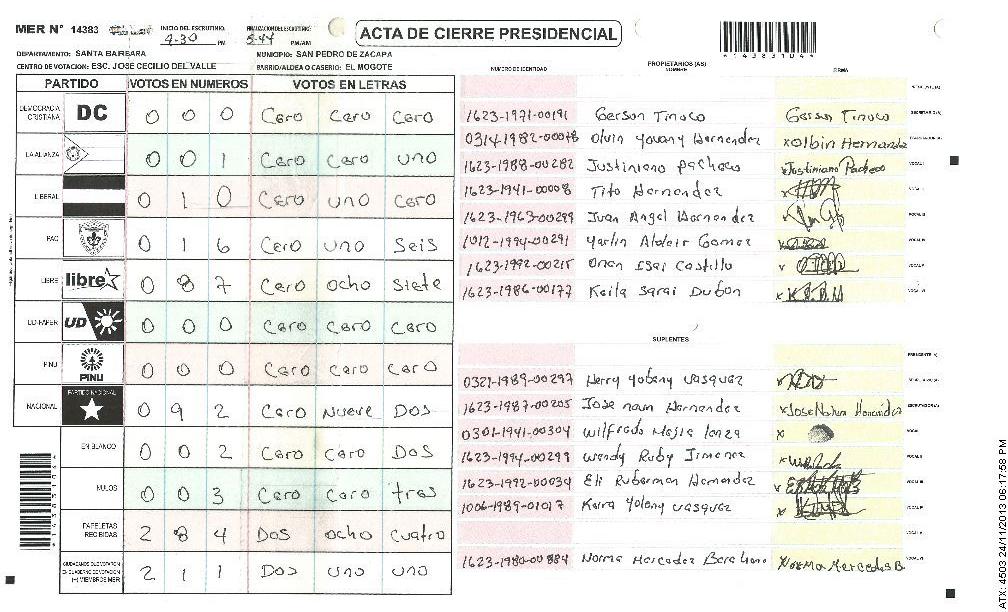 MER N° 14383 INICIO DEL ESCRUTINIO: 4:30 PM FINALIZACION DEL ESCRUTINIO: 5:44 PM/AM ACTA DE CIERRE PRESIDENCIAL
*14383104*
DEPARTAMENTO: SANTA BARBARA MUNICIPIO: SAN PEDRO DE ZACAPA
CENTRO DE VOTACION: ESC. JOSÉ CECILIO DEL VALLE BARRIO/ALDEA O CASERIO: EL MOGOTE
PARTIDO VOTOS EN NUMEROS VOTOS EN LETRAS
DEMOCRACIA CRISTIANA DC 0 0 0 Cero Cero Cero
LA ALIANZA 0 0 1 Cero Cero uno
LIBERAL 0 1 0 Cero uno Cero
PAC 0 1 6 Cero uno Seis
LIBRE libre 0 8 7 Cero ocho Siete
UD-FAPER UD 0 0 0 Cero Cero Cero
PINU PINU 0 0 0 Cero Cero Cero
NACIONAL PARTIDO NACIONAL 0 9 2 Cero Nueve Dos
EN BLANCO 0 0 2 Cero Cero Dos
NULOS 0 0 3 Cero Cero tres
PAPELETAS RECIBIDAS 2 8 4 Dos ocho Cuatro
CIUDADANOS QUE VOTARON EN CUADERNO DE VOTACION (+) MIEMBROS MER 2 1 1 Dos uno uno
NUMERO DE IDENTIDAD PROPIETARIOS (AS) NOMBRE FIRMA
PRESIDENTE (A)
1623-1971-00191 Gerson Tinoco Gerson Tinoco SECRETARIO (A)
0314-1982-00078 Olvin Yovany Hernandez Olbin Hernande
1623-1988-00282 Justiniano Pacheco Justiniano Pacheco VOCAL I
1623-1941-00008 Tito Hernandez
1623-1963-00299 Juan Angel Hernandez VOCAL III
1012-1994-00291 Yarlin Aldeir Gomez VOCAL IV
1623-1992-00215 Orlan Isai Castillo VOCAL V
1623-1986-00177 Keila Sarai Dubon VOCAL VI
SUPLENTES
PRESIDENTE (A)
0321-1989-00297 Herry Yobany Vasquez
1623-1987-00205 Jose naun Hernandez ESCRUTADOR (A)
0301-1941-00304 Wilfredo Mejia VOCAL I
1623-1994-00299 Wendy Ruby Jimenez
1623-1992-00034 Eli Ruberman Hernandez VOCAL III
1006-1989-01017 Keira Yolany Vasquez VOCAL IV
VOCAL V
1623-1980-00884 Norma Mercedes Norma Mercedes B. VOCAL VI
ATX: 4503 24/11/2013 06:17:58 PM